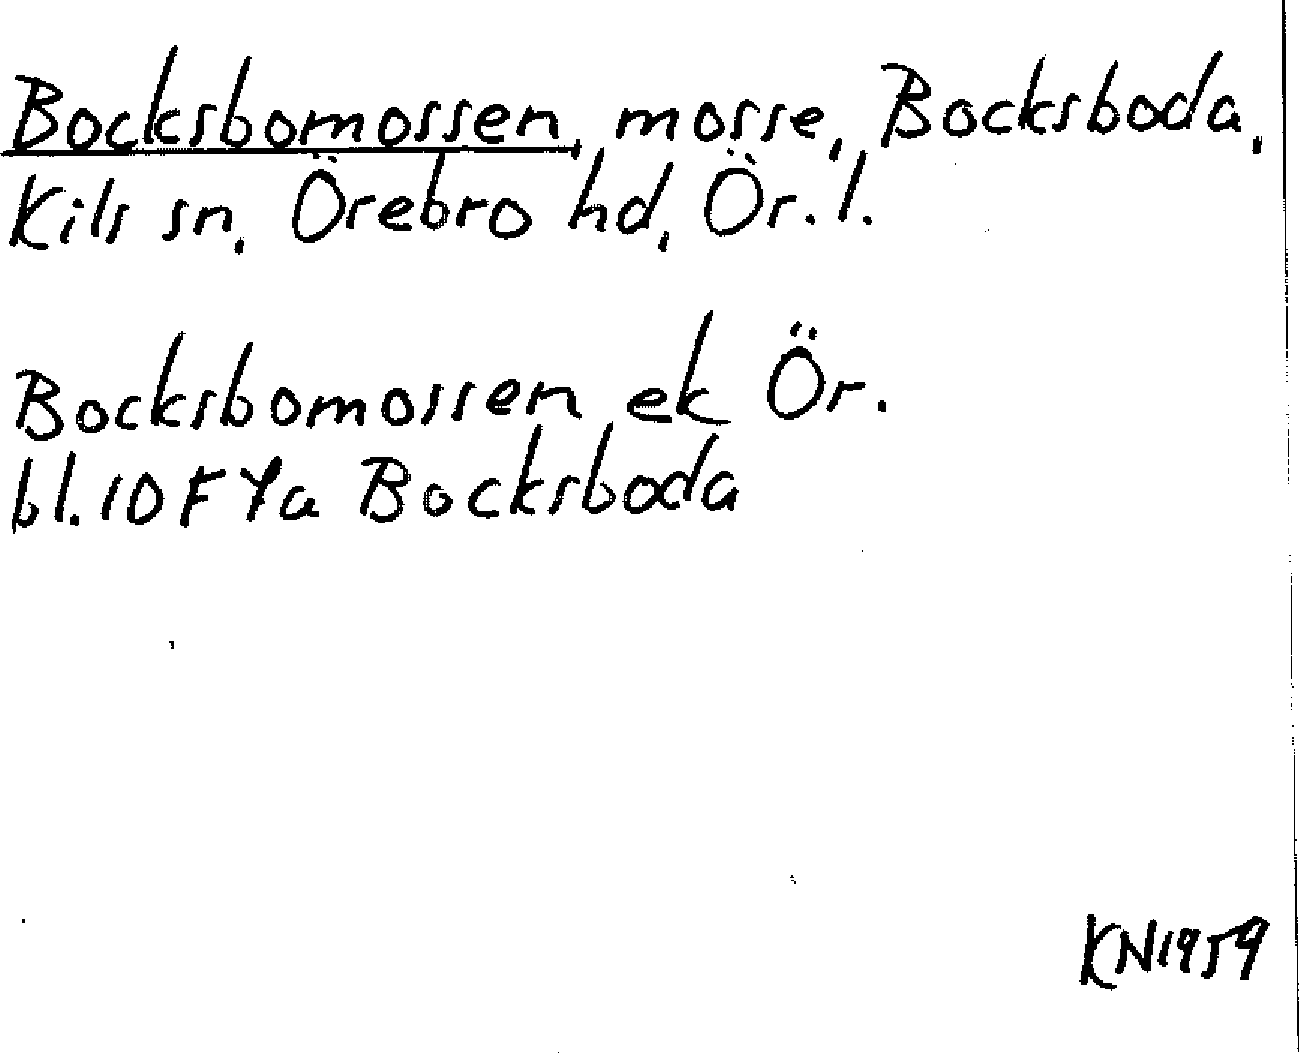 Bocksbomossen, mosse, Bocksboda,
Kils sn, Örebro hd, Ör. l.
Bocksbomossen ek Ör.
bl. 10F Ya Bocksboda
KN1959